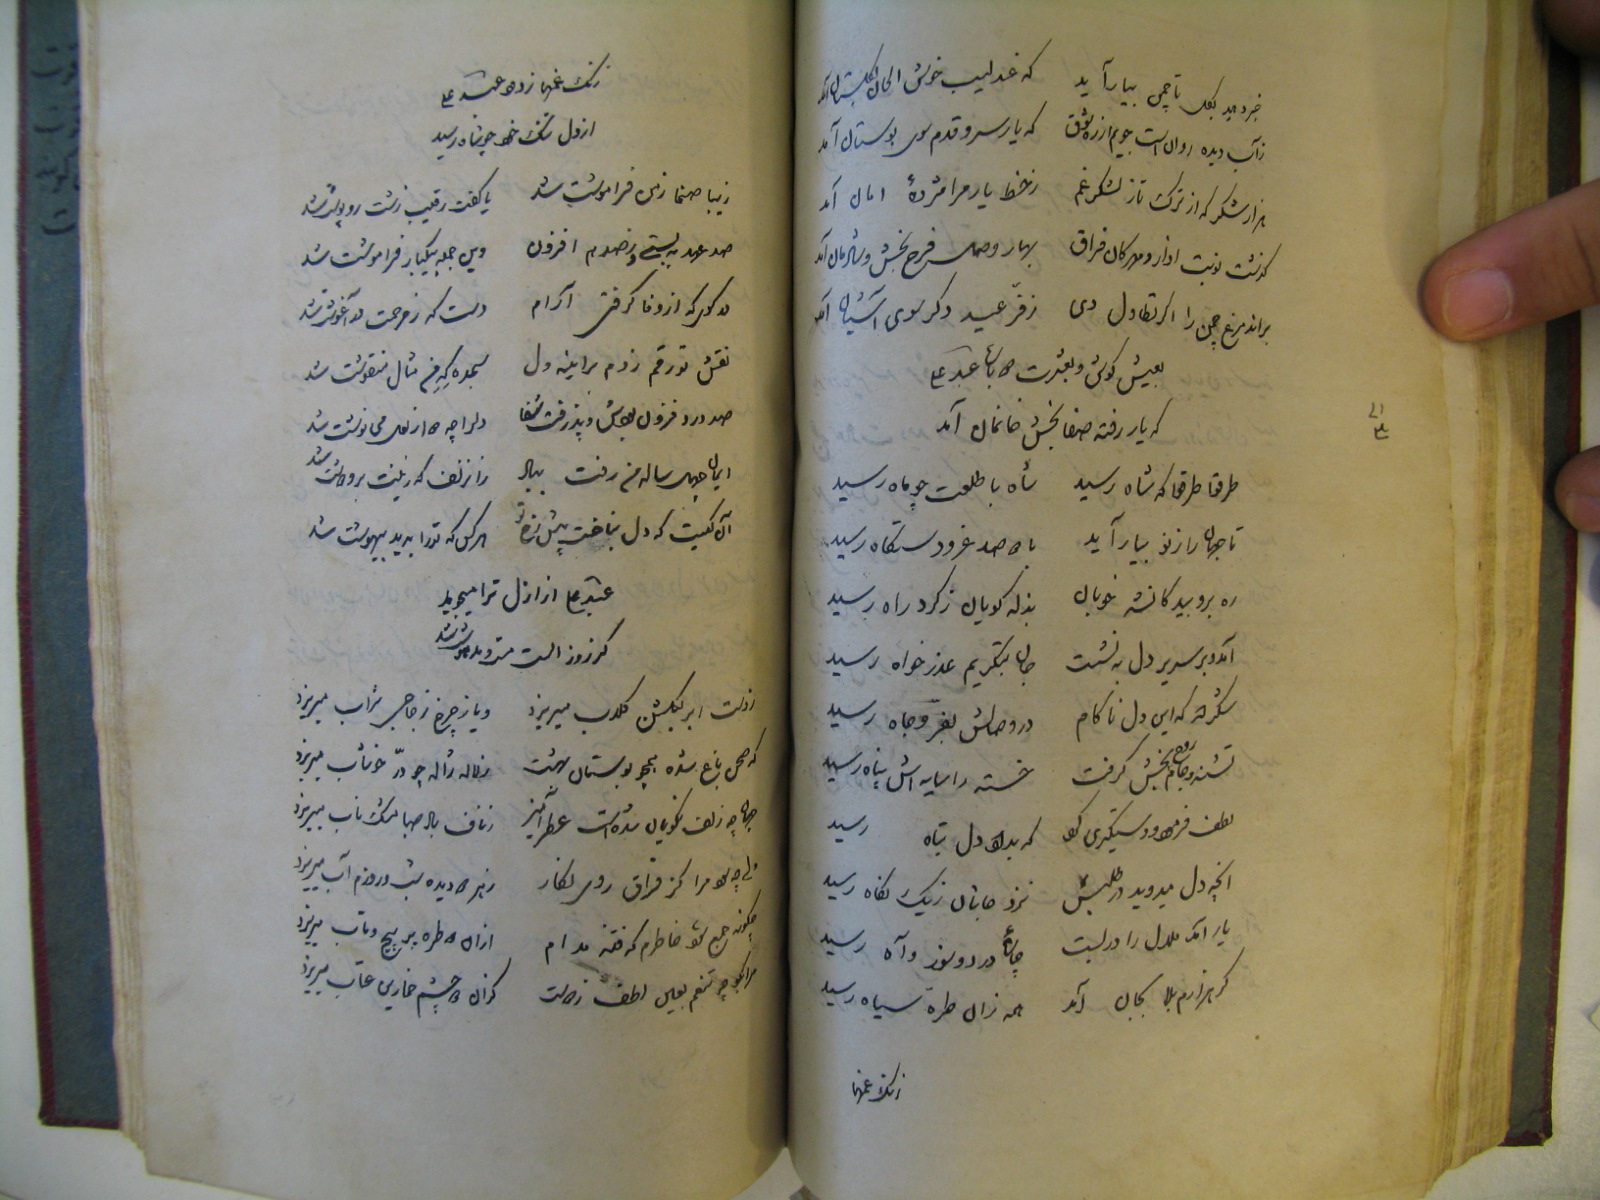 خبر دهید بگل تا چمن بیارآید که عندلیب خوش الحان بگلستان آمد
زآب دیده روان است جویم از ره شوق که یار سرو قدم سوی بوستان آمد
هزار شکر که از ترک تاز لشکر غم ز خط یار مرا مژدهٔ امان آمد
گذشت نوبت ادار و مهرکان فراق بهار وصل فرح بخش و شادمان آمد
براند مرغ چمن را اگر تطاول دی ز فرّ عید دگر سوی آشیان آمد
بعیش کوش و بعشرت
که یار رفته صفا بخش خانمان آمد
الی
طرقوا طرقوا که شاه رسید شاه با طلعت چو ماه رسید
تا جهان را ز نو بیارآید با صد فر و دستگاه رسید
ره بروبید کانشه خوبان بذله گویان ز گرد راه رسید
آمد و بر سریر دل به نشست جان بتکریم عذر خواه رسید
شکر لله که این دل ناکام در وصالش بعزّ و جاه رسید
تشنه جام روح بخش گرفت خسته را سایه اش پناه رسید
لطف فرمود و دستگیری کرد که بداد دل تباه رسید
آنچه دل میدوید در طلبش نزد جانان ز یک نگاه رسید
یار آمد ملال را در بست چارهٔ درد و سوز و آه رسید
گر هزارم بلا بجان آمد همه زان طره سیاه رسید
زنک غمها
زنک غمها زدود عبد
از دل تنک خود چو شاه رسید
زیبا صنما ز من فراموشت شد یا گفت رقیب زشت رو پوشت شد
صد عهد به بستی و ز صدم افزون وین جمله بیکبار فراموشت شد
در کوی که از وفا گرفتی آرام دست که ز مرحمت در آغوشت شد
نقش تو رقم زدم بر اینه دل سجده که من مثال منقوشت شد
صد درد فزون بودش و پذرفت شفا دلرا چه از لعل می نوشت شد
ایمان چهل ساله من رفت بباد زان زلف که زینت بر و دوشت شد
آن کیست که دل نباخت پیش رخ تو هر کس که تو را بدید بیهوشت شد
عبد از ازل ترا میجوید
کز روز الست مست و مدهوشت شد
ز دست ابر بگلشن گلاب میریزد و یا ز چرخ زجاجی شراب میریزد
که صحن باغ شده همچو بوستان بهشت ز لاله ژاله چو درّ خوشاب میریزد
جهان چه زلف نکویان شده است عطر آمیز ز ناف باد صبا مشک ناب میریزد
ولی چه سود مرا کز فراق روی نگار ز هر دو دیده شب و روزم آب میریزد
چگونه جمع شود خاطرم که فتنه مدام از ان دو طره پر پیچ و تاب میریزد
مرا بگو چه تنعم بعین لطف ز دست کزان دو چشم خمارین عتاب میریزد